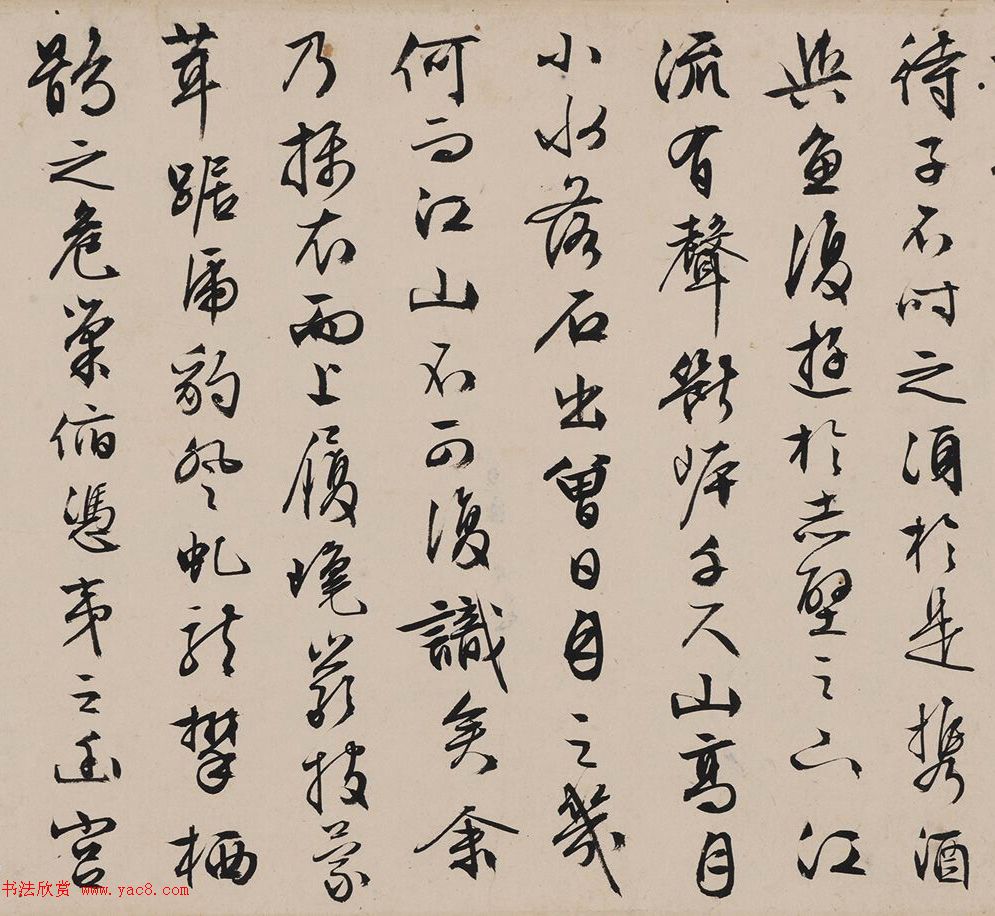 待子不時之須於是攜酒
與魚復遊於赤壁之下江
流有聲斷岸千尺山高月
小水落石出曾日月之幾
何而江山不可復識矣余
乃攝衣而上履巉巖披蒙
茸踞虎豹登虬龍攀栖
鶻之危巢俯憑夷之幽宮
书法欣赏 www.yac8.com